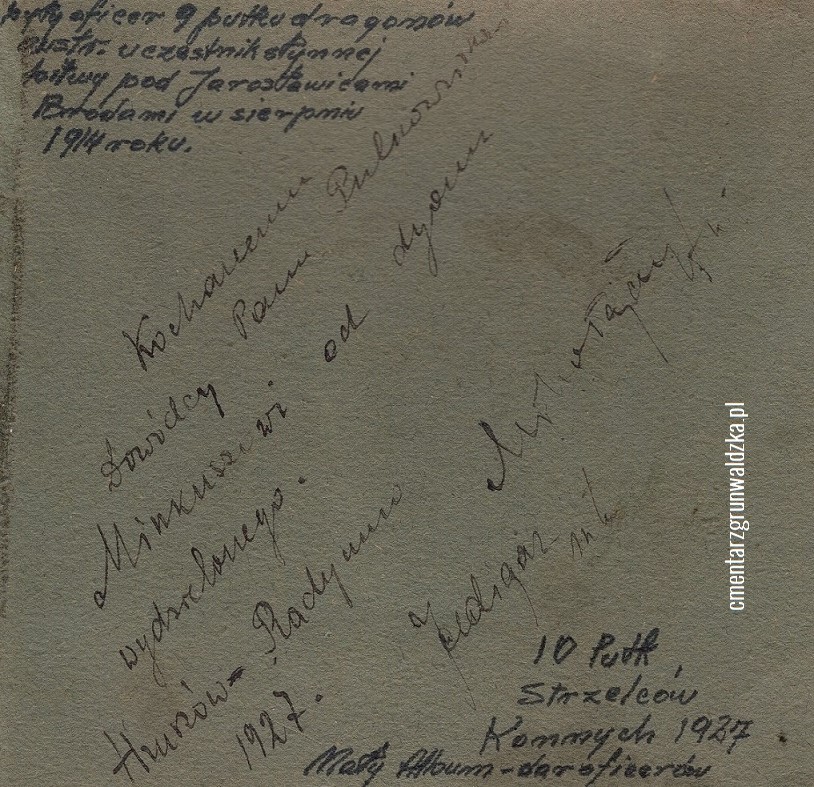 były oficer 9 pułku dragonów
austr. uczestnik słynnej
bitwy pod Jarosławicami
Brodami w sierpniu
1914 roku.
Kochanemu
Dowódcy Panu Pułkownikowi
Minkuszewi od dyonu
wydzielonego.
Hruszów- Radymno
1927.
10 Pułk
Strzelców
Konnych 1927
Mały Album-dar oficerów
cmentarzgrunwaldzka.pl